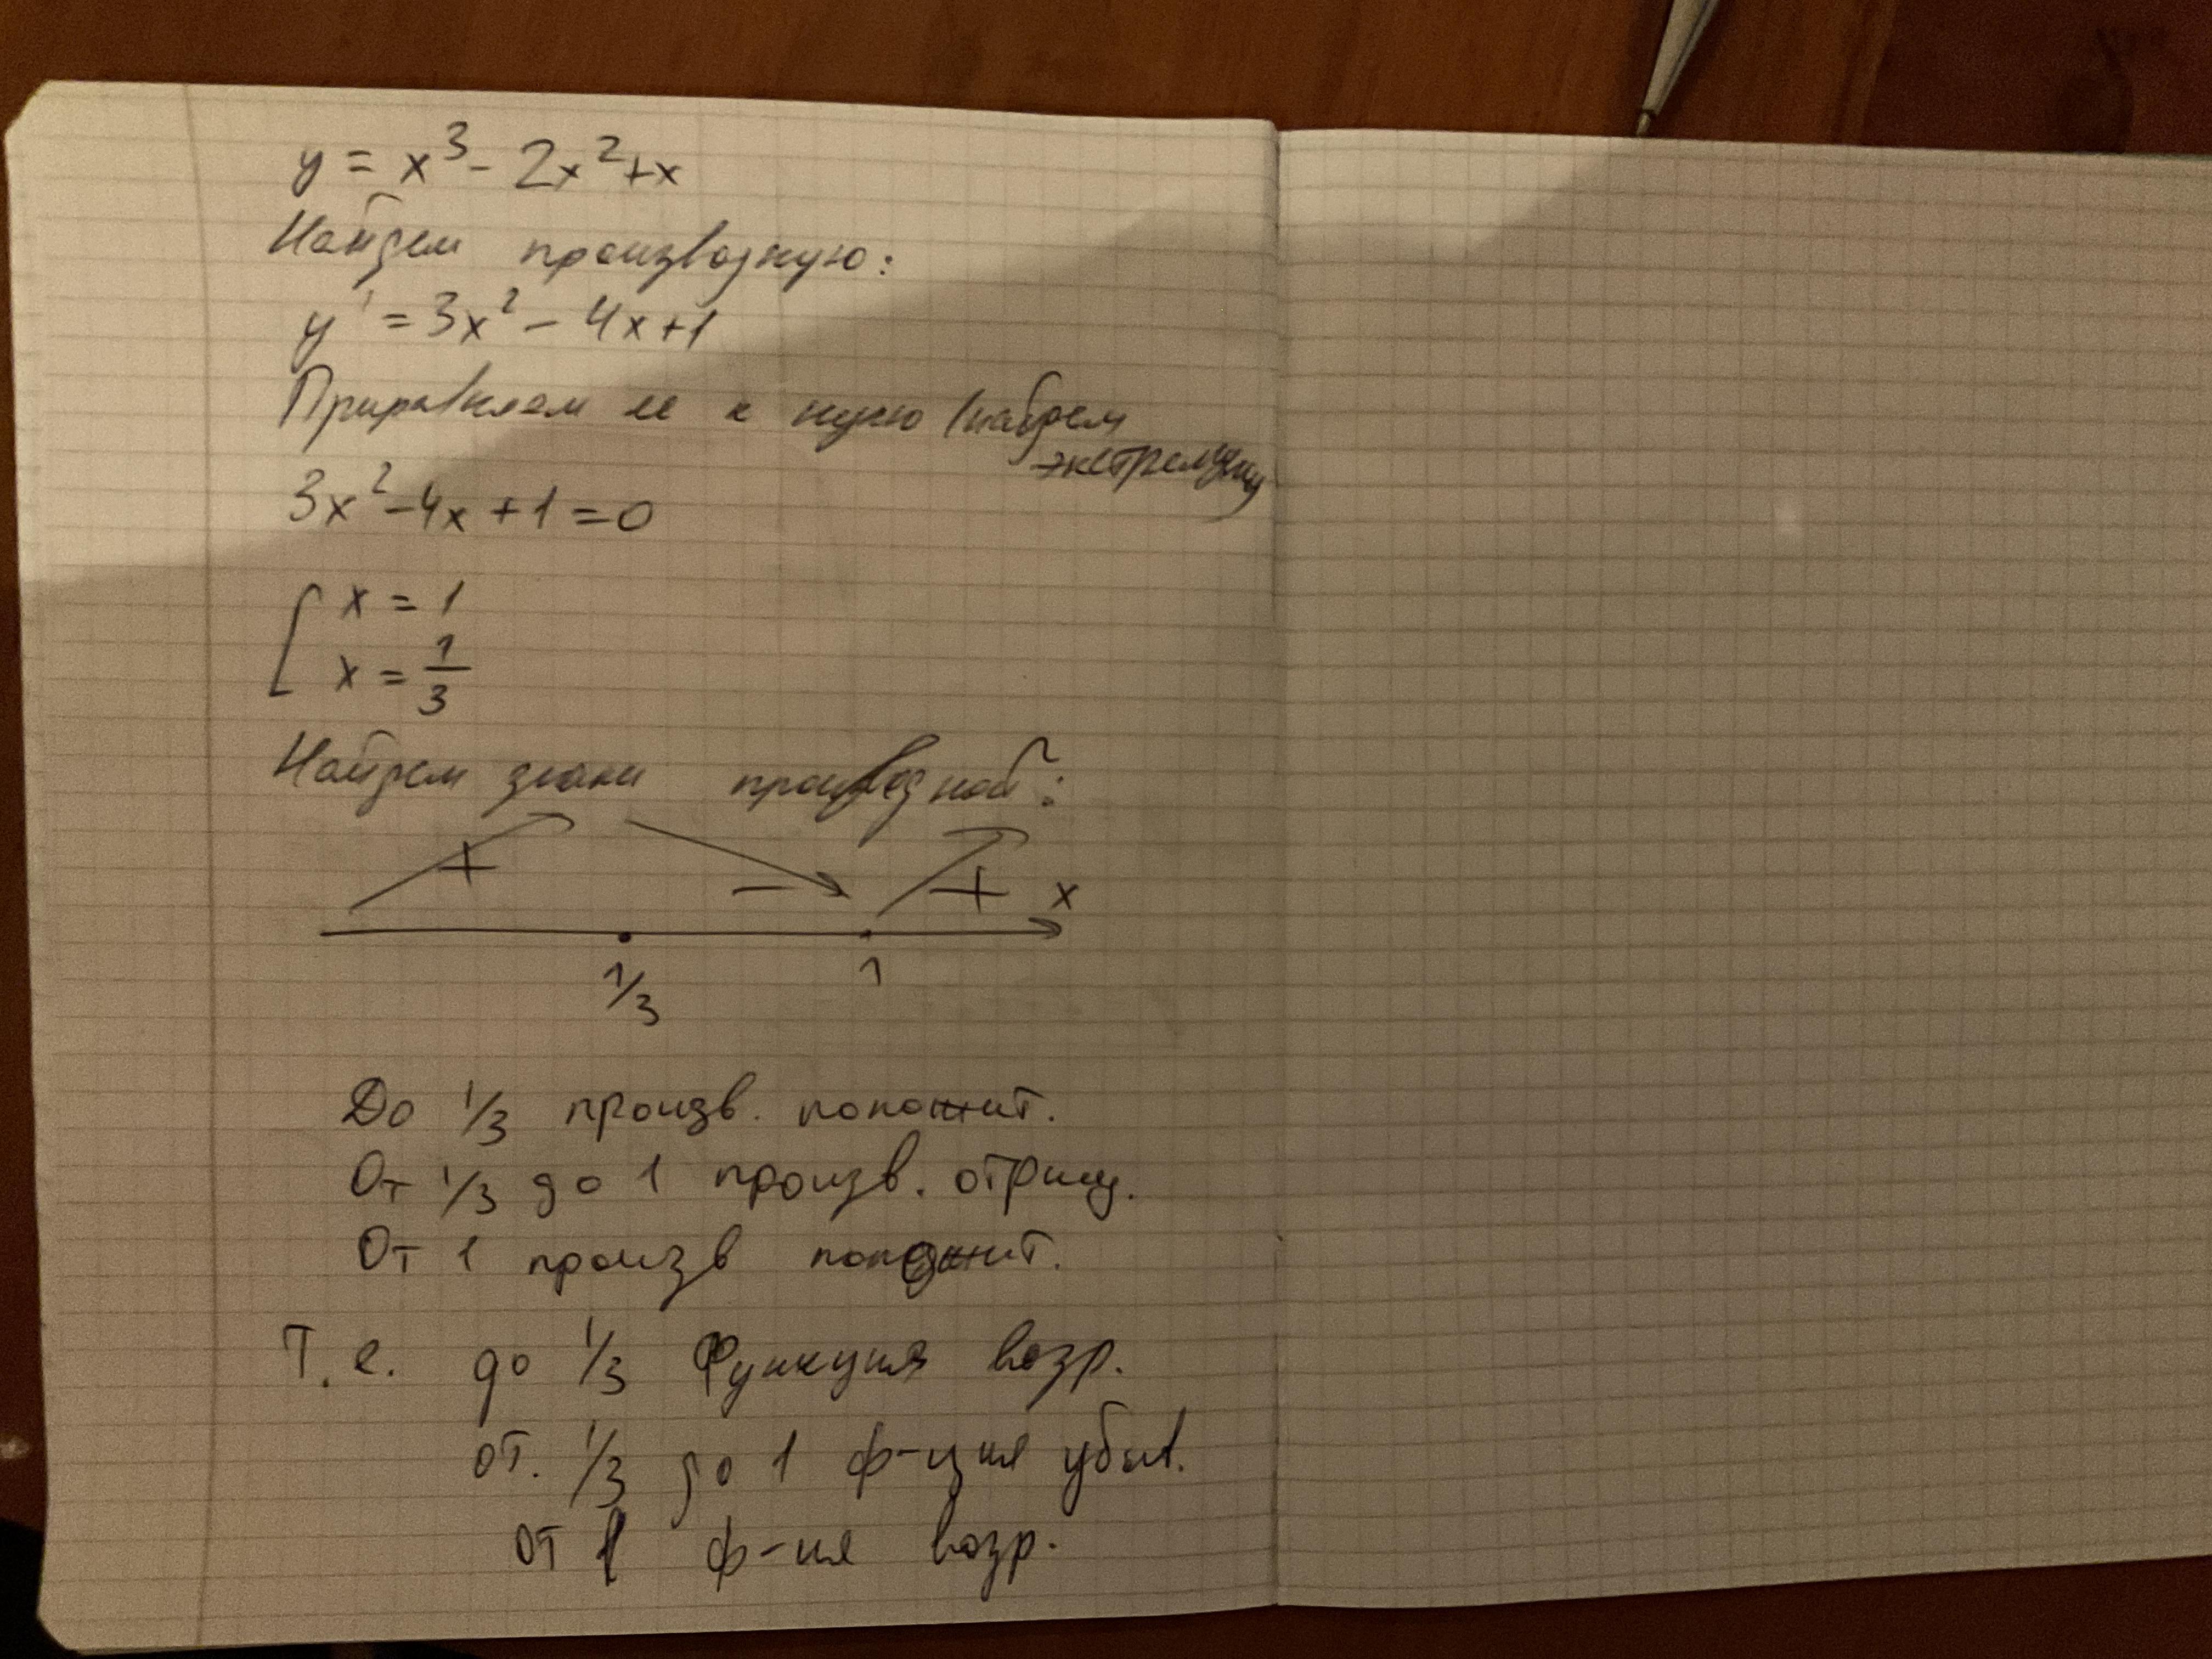 y = x³ - 2x² + x
Найдем производную:
y' = 3x² - 4x + 1
Приравняем ее к нулю (найдем
экстремумы
3x² - 4x + 1 = 0
x = 1
x = 1/3
Найдем знаки производной:
+ − + x
1/3 1
До 1/3 произв. положит.
От 1/3 до 1 произв. отриц.
От 1 произв положит.
Т.е. до 1/3 Функция возр.
от. 1/3 до 1 ф-ция убыв.
от 1 ф-ия возр.